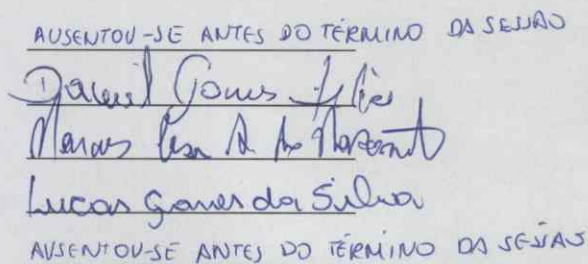 AUSENTOU-SE ANTES DO TÉRMINO DA SESSÃO
Daniel Gomes
Marcos
Lucas Gomes da Silva
AUSENTOU-SE ANTES DO TÉRMINO DA SESSÃO